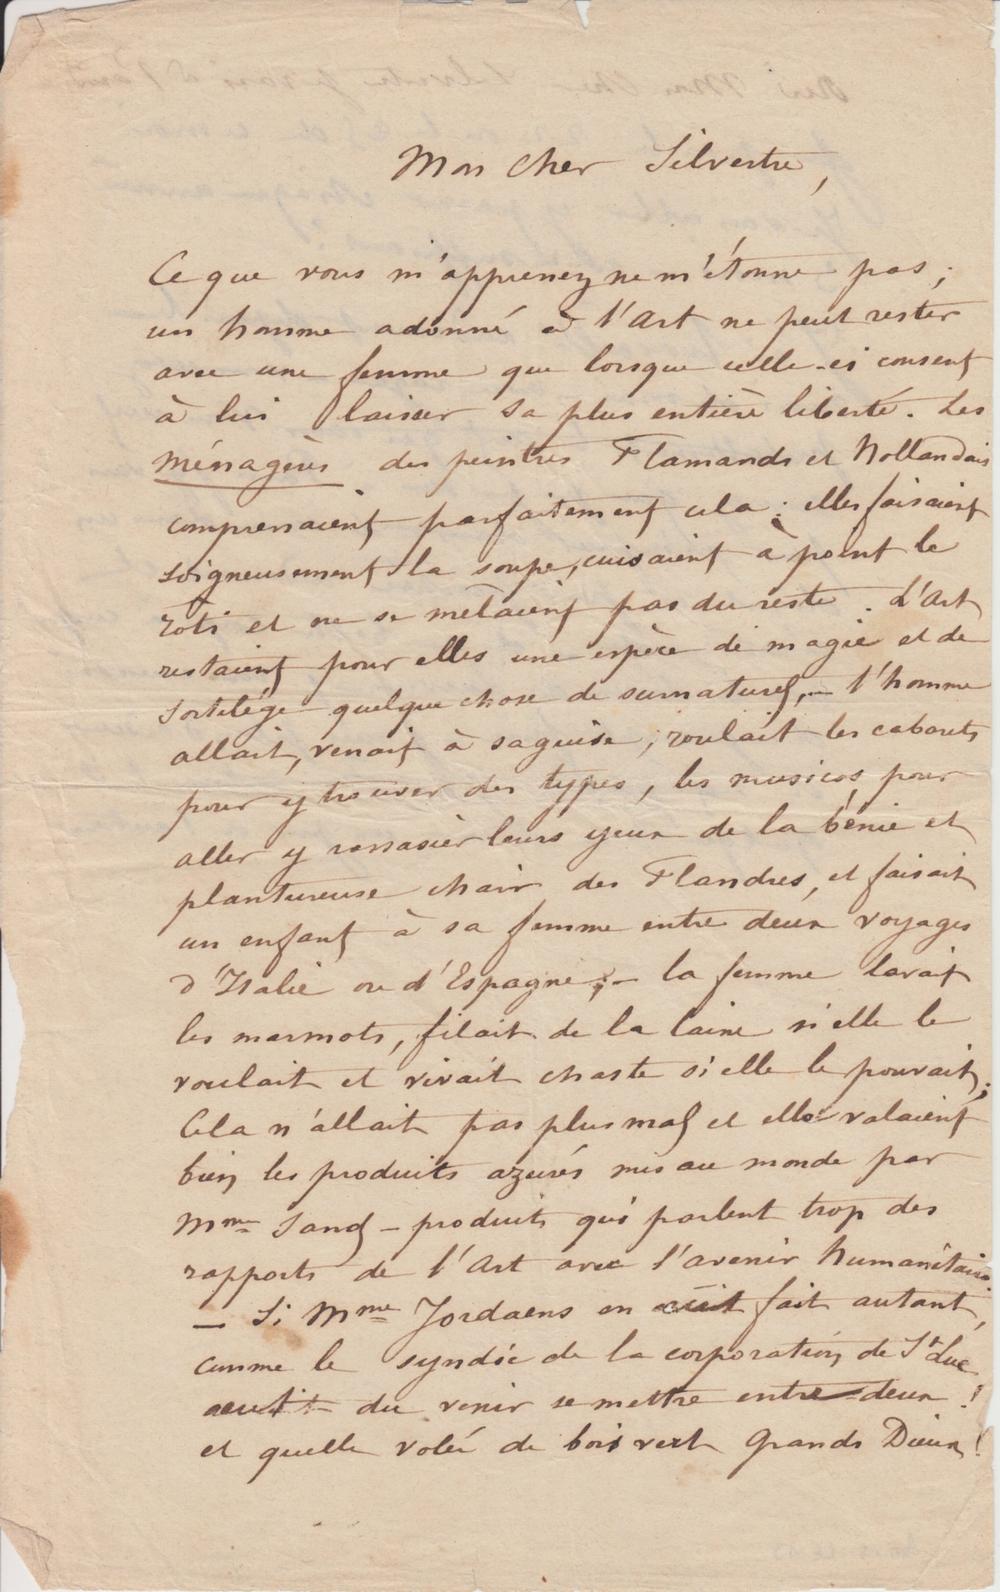 Mon cher Silvestre,
Ce que vous m'apprenez ne m'étonne pas ;
un homme adonné à l'Art ne peut rester
avec une femme que lorsque celle-ci consent
à lui laisser sa plus entière liberté. Les
Ménagères des peintres Flamands et Hollandais
comprenaient parfaitement cela : elles faisaient
soigneusement la soupe, cuisaient à point le
rôti et ne se mêlaient pas du reste. L'Art
restaient pour elles une espèce de magie et de
sortilége quelque chose de surnaturel, – l'homme
allait, venait à sa guise, roulait les cabarets
pour y trouver des types, les musicos, pour
aller y rassasier leurs yeux de la bénie et
plantureuse chair des Flandres, et faisait
un enfant à sa femme entre deux voyages
d'Italie ou d'Espagne ; – la femme lavait
les marmots, filait de la laine si elle le
voulait et vivait chaste si elle le pouvait ;
Cela n'allait pas plus mal et elles valaient
bien les produits azurés mis au monde par
Mme Sand – produits qui parlent trop des
rapports de l'Art avec l'avenir humanitaire
– Si Mme Jordaens en eût fait autant,
comme le syndic de la corporation de St Luc
aurait du venir se mettre entre deux !
et quelle volée de bois vert Grands Dieux !